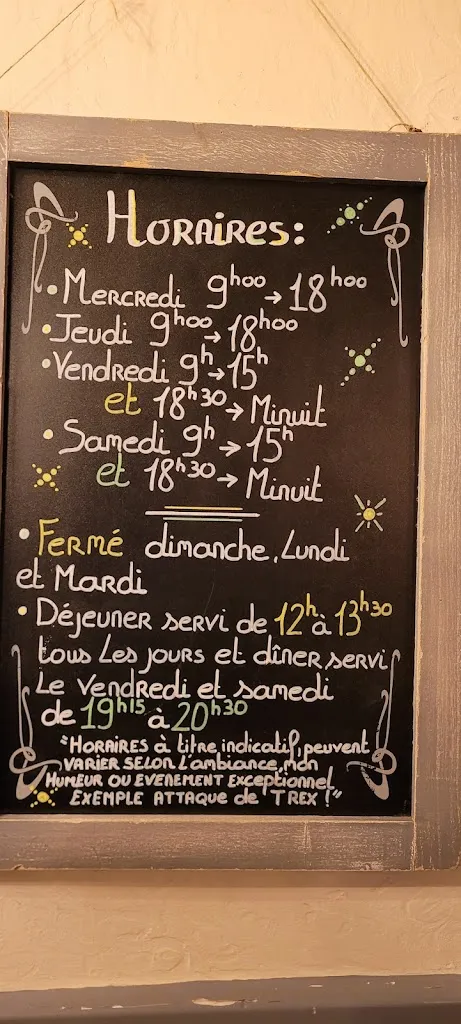 Horaires:
• Mercredi 9h00 → 18h00
• Jeudi 9h00 → 18h00
• Vendredi 9h → 15h
et 18h30 → Minuit
• Samedi 9h → 15h
et 18h30 → Minuit
• Fermé dimanche, Lundi
et Mardi
• Déjeuner servi de 12h à 13h30
tous Les jours et dîner servi
Le vendredi et samedi
de 19h15 à 20h30
"HORAIRES à titre indicatif, peuvent
VARIER SELON L'ambiance, mon
HUMEUR OU EVENEMENT Exceptionnel
EXEMPLE ATTAQUE de T REX !"